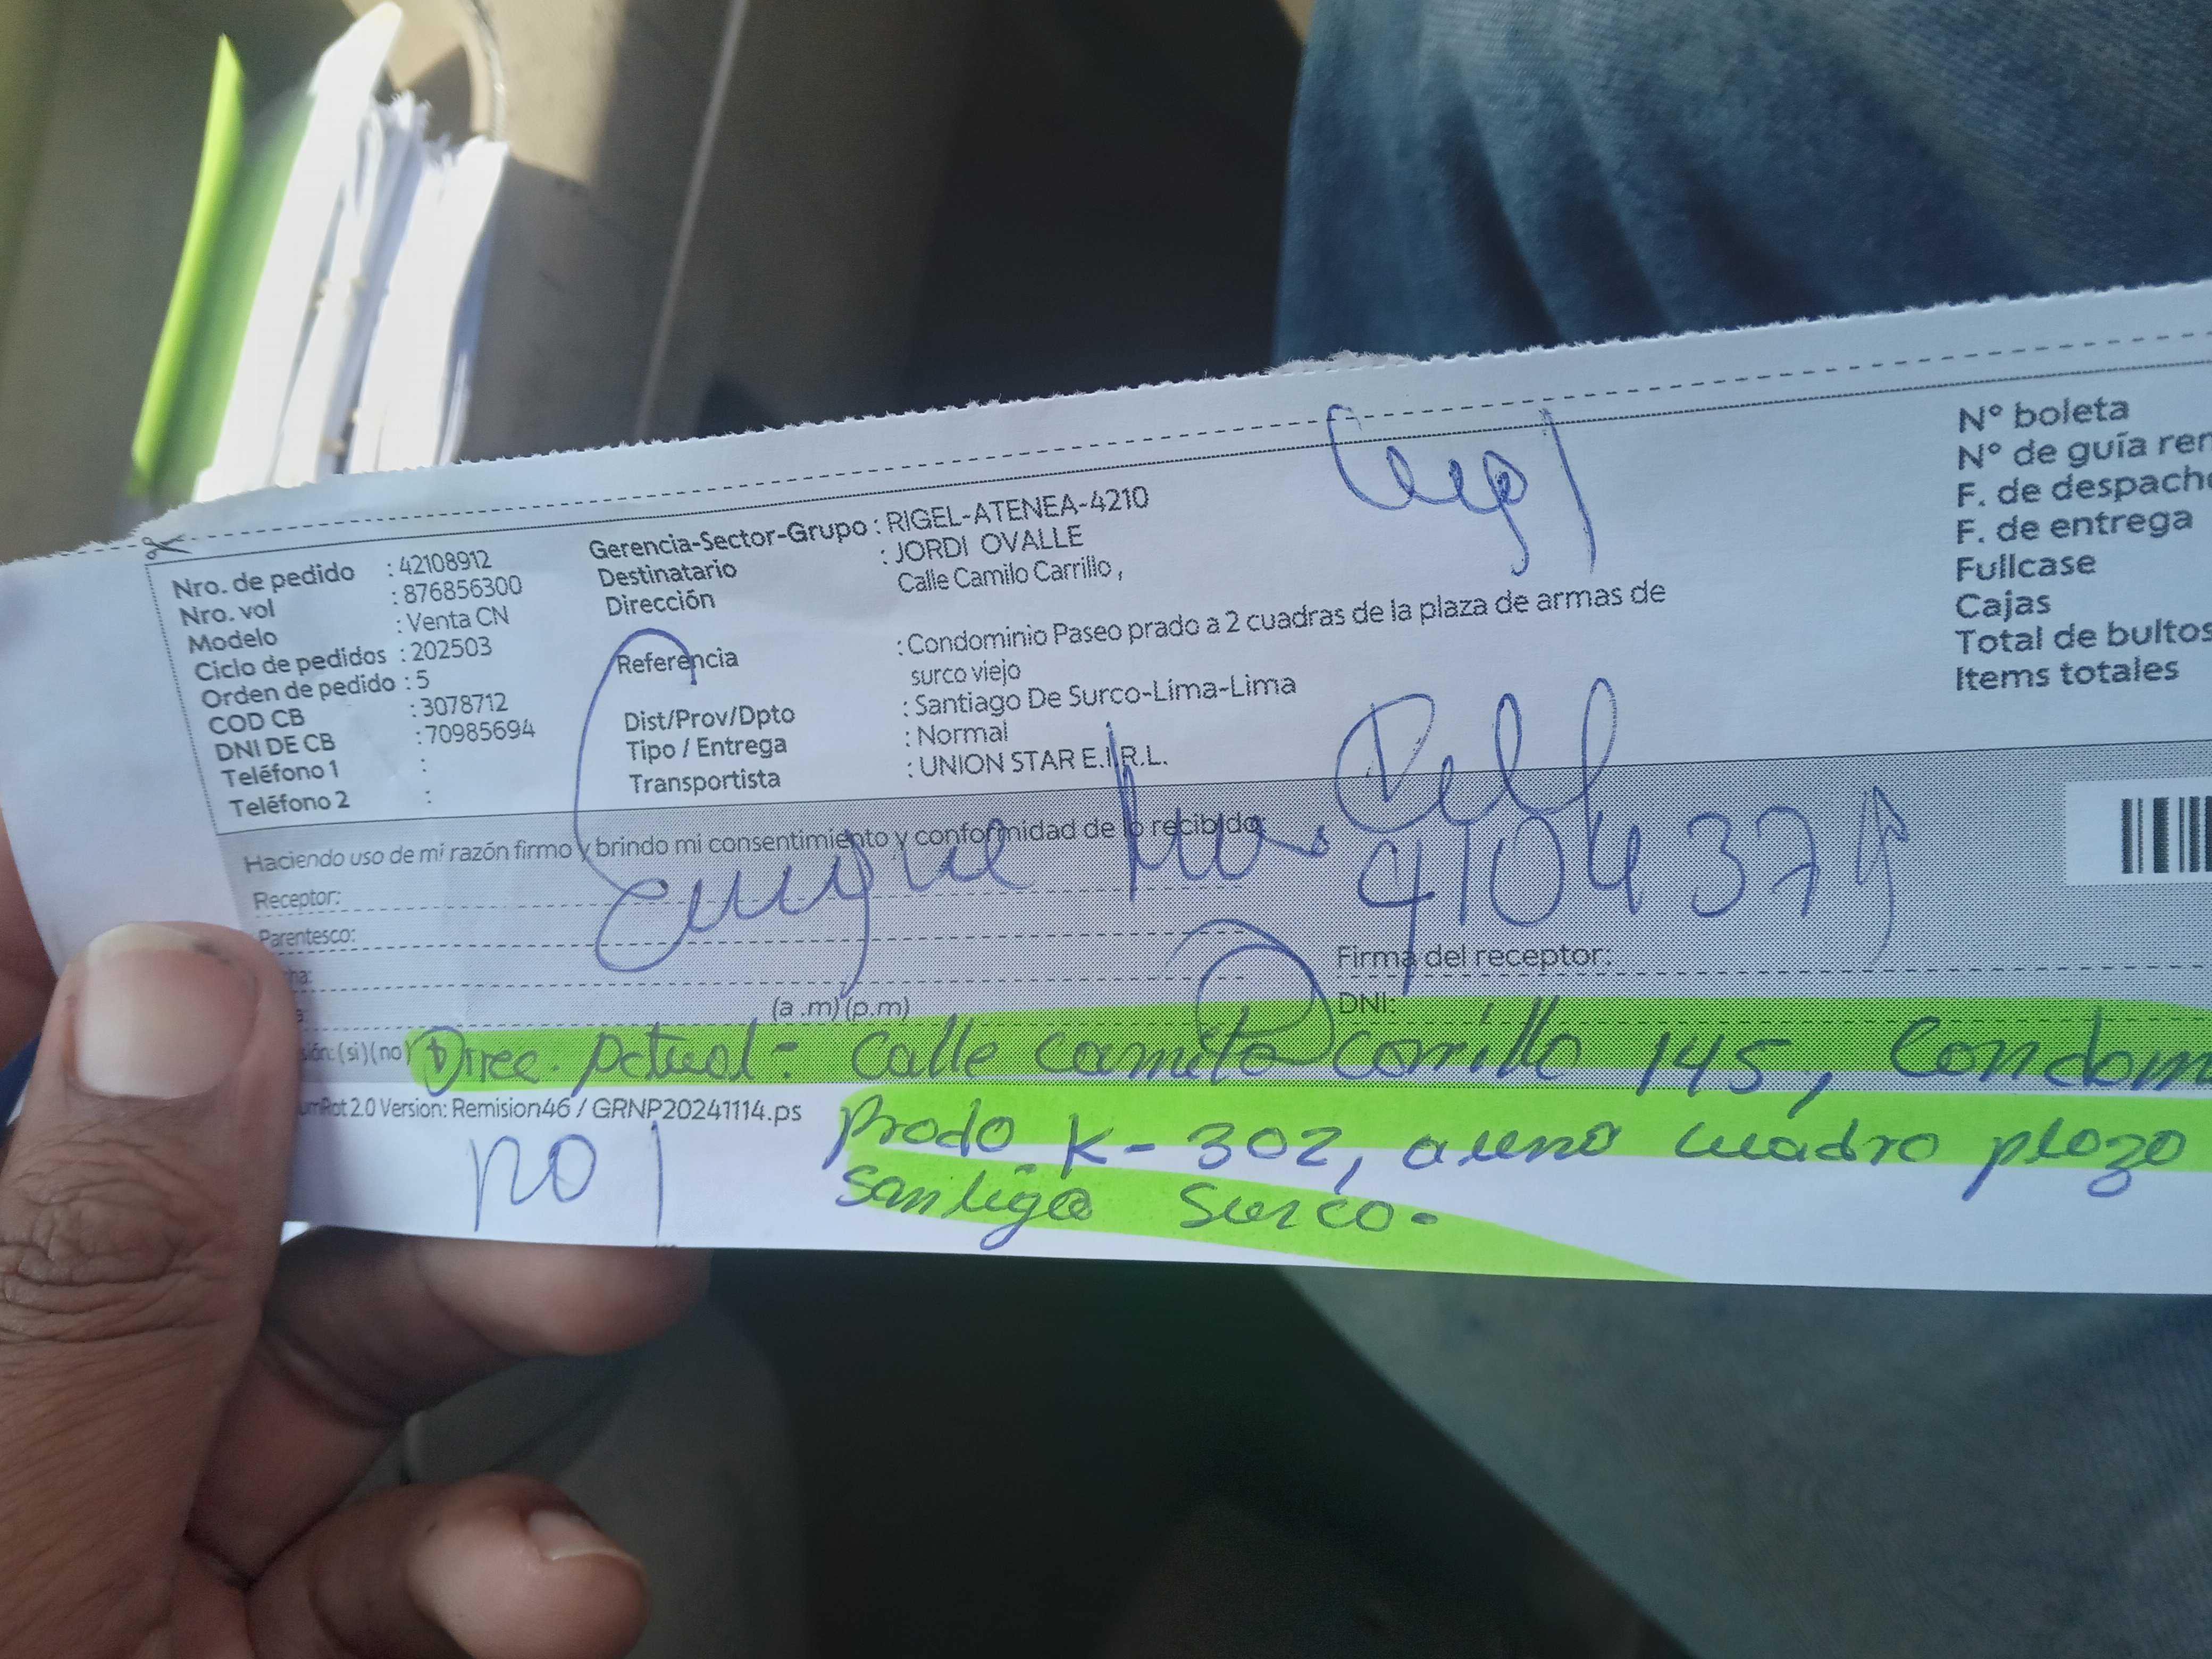 Nro. de pedido : 42108912
Nro. vol : 876856300
Modelo : Venta CN
Ciclo de pedidos : 202503
Orden de pedido : 5
COD CB : 3078712
DNI DE CB : 70985694
Teléfono 1 :
Teléfono 2 :
Gerencia-Sector-Grupo : RIGEL-ATENEA-4210
Destinatario : JORDI OVALLE
Dirección Calle Camilo Carrillo ,
Referencia : Condominio Paseo prado a 2 cuadras de la plaza de armas de
surco viejo
Dist/Prov/Dpto : Santiago De Surco-Lima-Lima
Tipo / Entrega : Normal
Transportista : UNION STAR E.I.R.L.
N° boleta
N° de guía
F. de despacho
F. de entrega
Fullcase
Cajas
Total de bultos
Items totales
Haciendo uso de mi razón firmo y brindo mi consentimiento y conformidad de lo recibido:
Receptor:
Parentesco:
(a .m) (p.m)
(si) (no)
Firma del receptor:
DNI:
Direc. Actual: Calle Camilo Carrillo 145, Condom
2.0 Version: Remision46 / GRNP20241114.ps
Prado K-302, a una cuadra plaza
Surco.